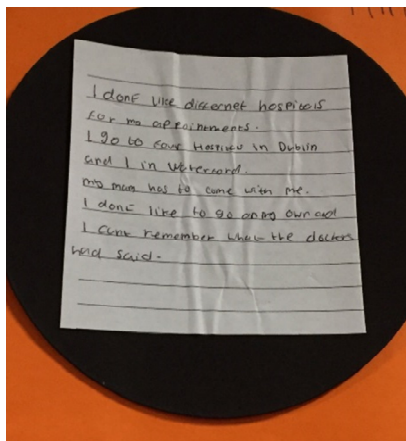 I dont like differnet hospitals
for mo appointments.
I go to four Hospitals in Dublin
and 1 in waterford.
my mam has to come with me.
I dont like to go on my own cos
I cant remember what the doctors
had said.